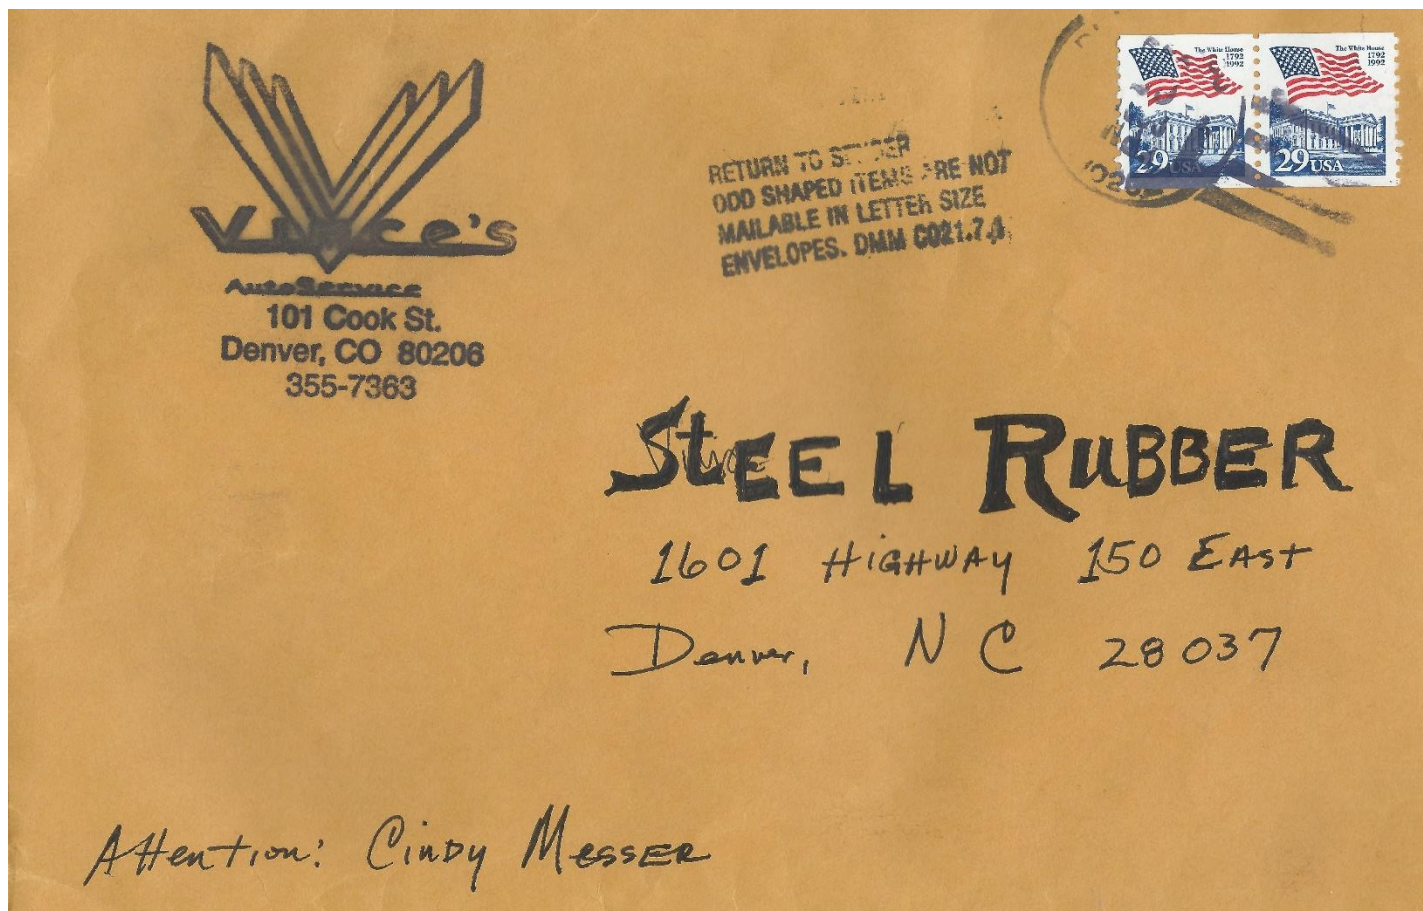 Vince's
AutoService
101 Cook St.
Denver, CO 80206
355-7363
RETURN TO SENDER
ODD SHAPED ITEMS ARE NOT
MAILABLE IN LETTER SIZE
ENVELOPES. DMM C021.7.
The White House
1792
1992
29 USA
The White House
1792
1992
29 USA
STEEL RUBBER
1601 HIGHWAY 150 EAST
Denver, NC 28037
Attention: Cindy Messer